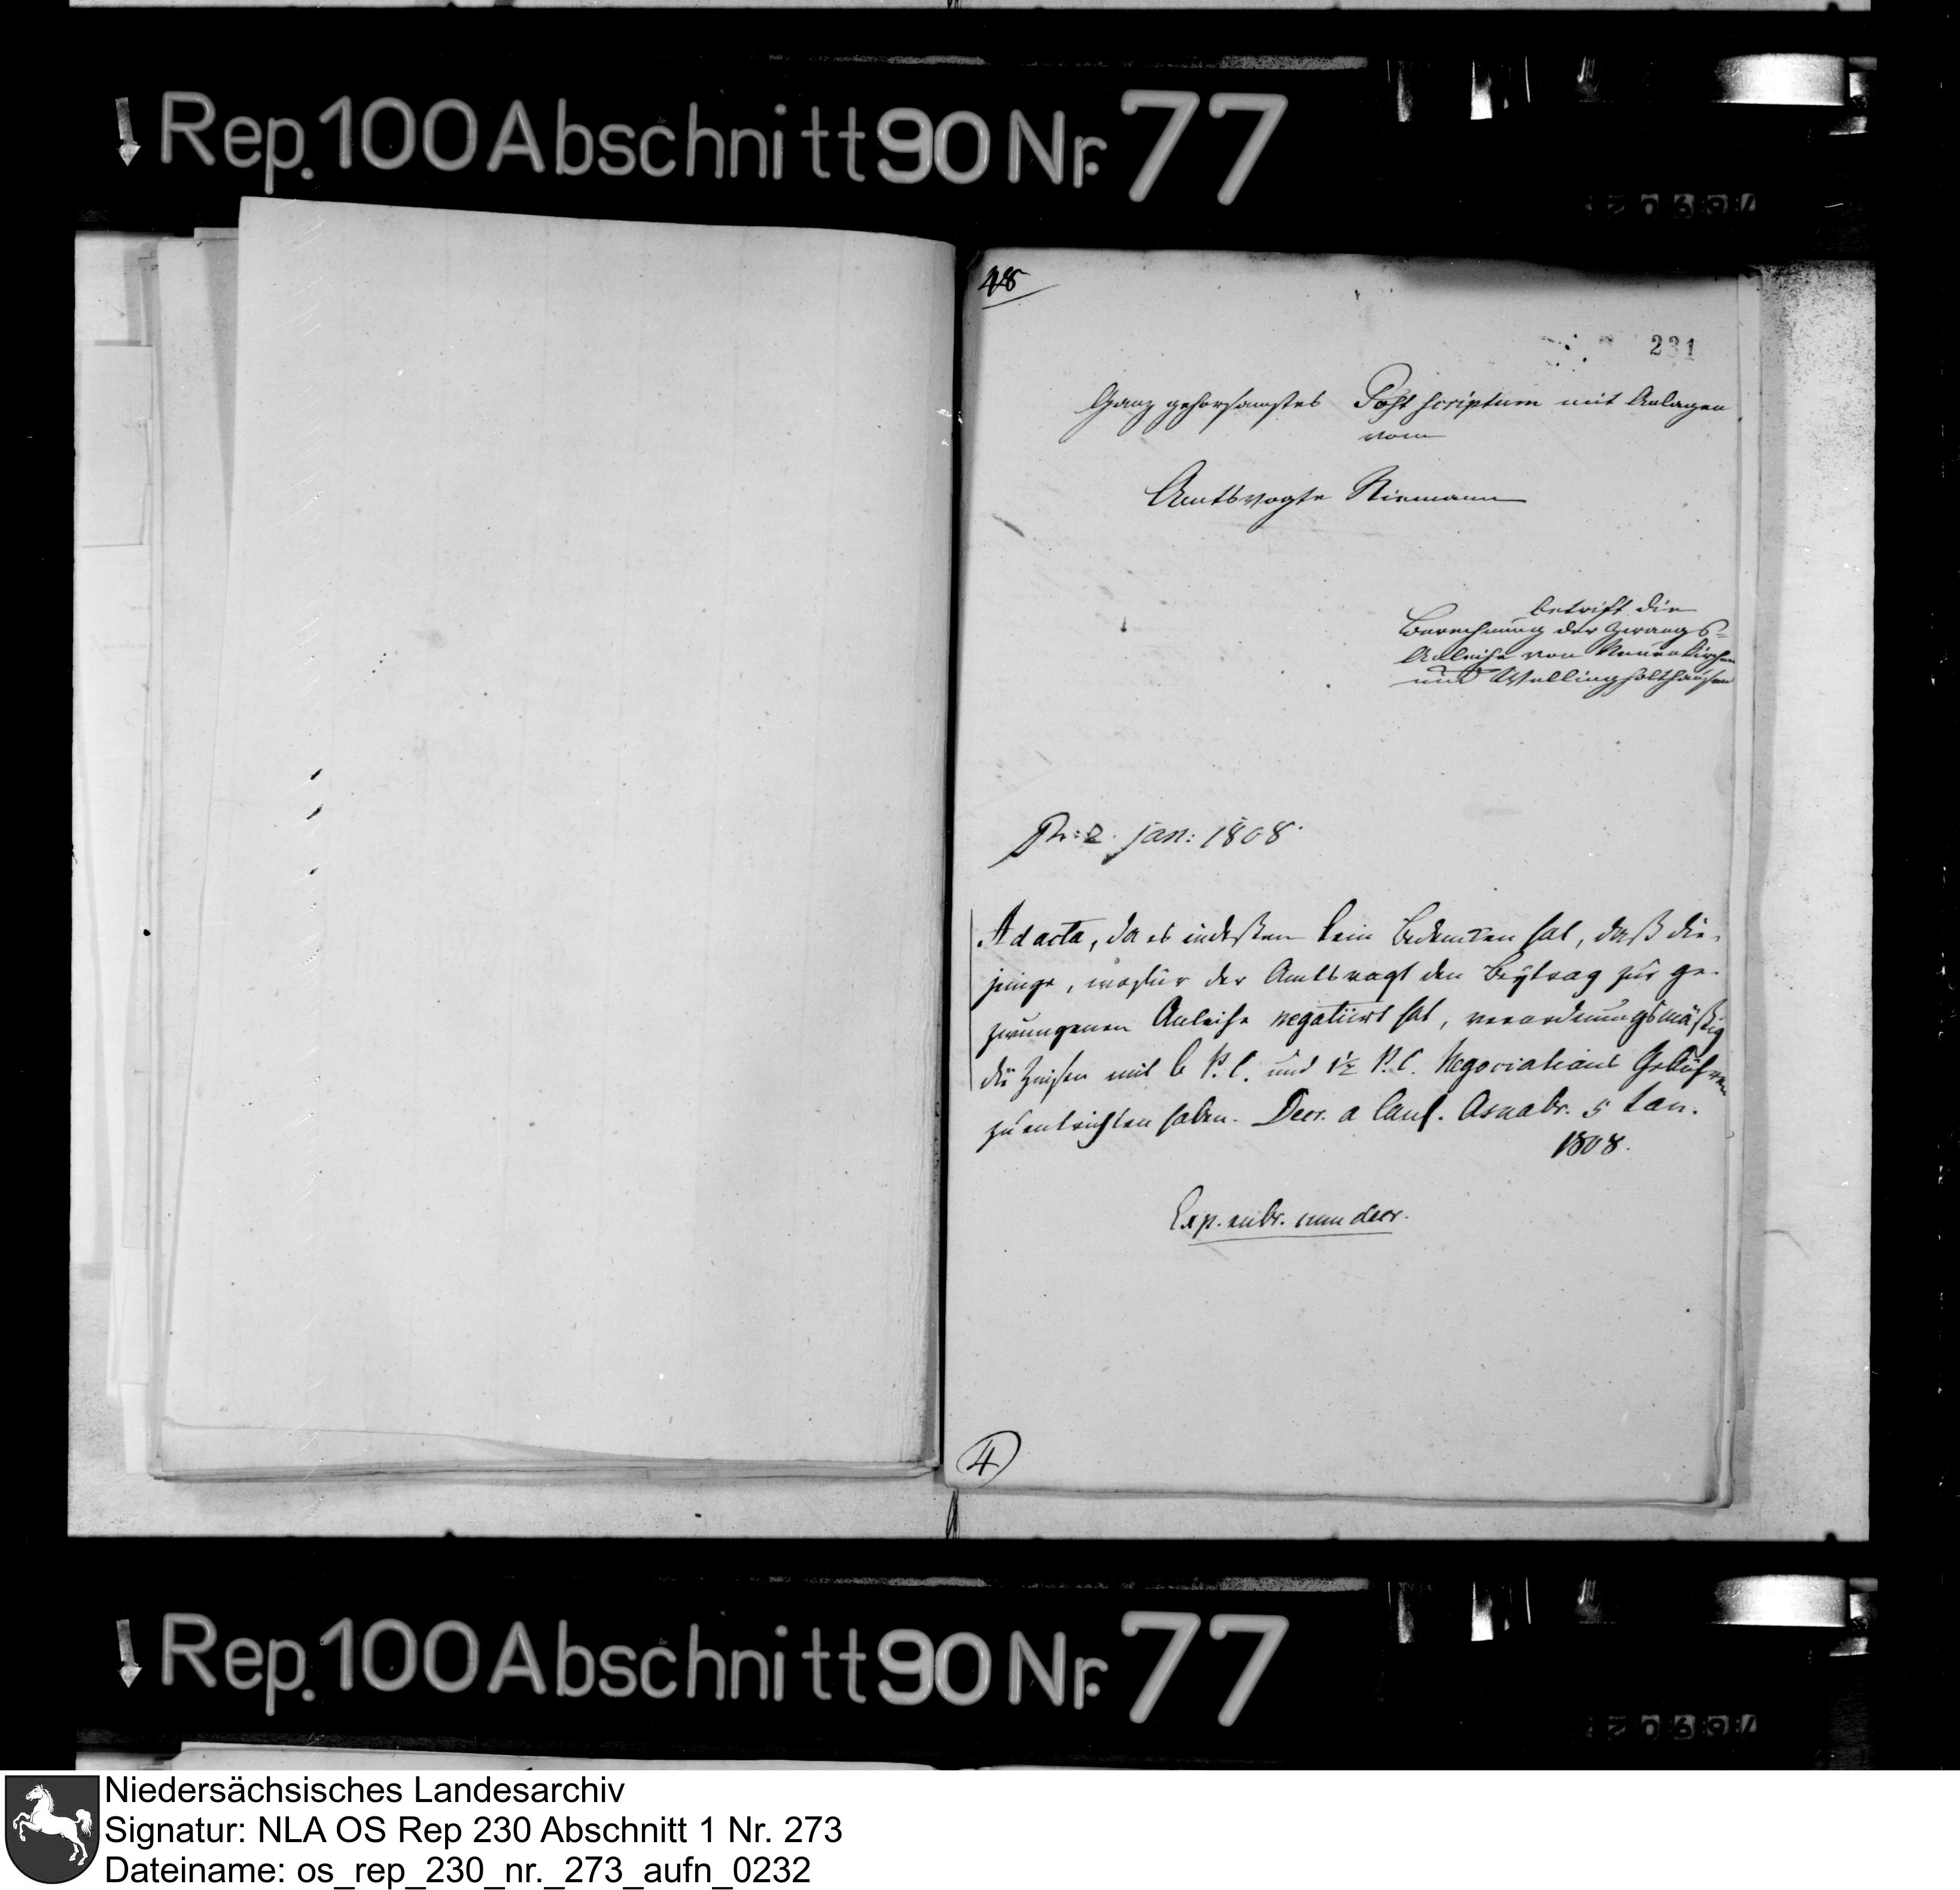 Rep. 100 Abschnitt 90 Nr. 77
48
231
Ganz gehorsamstes Post scriptum mit Anlagen
vom
Amtsvogte Niemann
betrift die
Berechnung der Zwangs-
Anleihe von Neuenkirchen
und Wellingholthausen
Pr: 2. jan: 1808.
Ad acta, da es indeßen kein Bedenken hat, daß die-
jenige, wofür der Amtsvogt den Beÿtrag zur ge-
zwungenen Anleihe negotiirt hat, verordnungsmäßig
die Zinsen mit 6 P. C. und 1½ P. C. Negociations Gebühren
zu entrichten haben. Decr. a Canc. Osnabr. 5 Jan.
1808.
Exp. subr. cum decr.
4
Rep. 100 Abschnitt 90 Nr. 77
Niedersächsisches Landesarchiv
Signatur: NLA OS Rep 230 Abschnitt 1 Nr. 273
Dateiname: os_rep_230_nr._273_aufn_0232